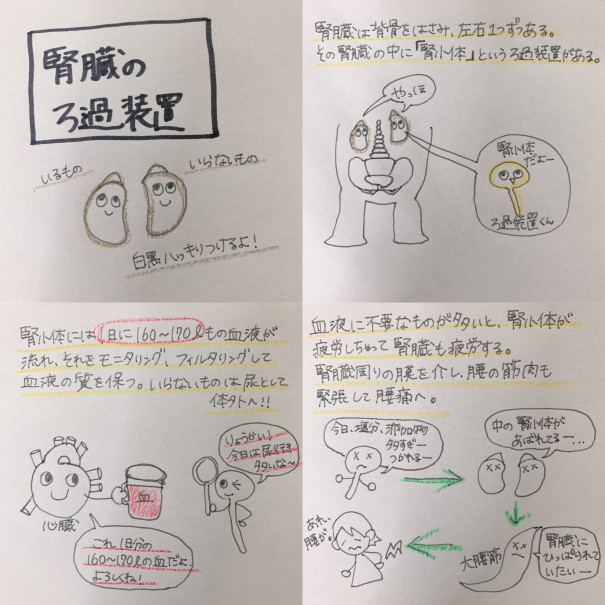 腎臓の
ろ過装置
いるもの
いらないもの
白黒ハッキりつけるよ！
腎臓は背骨をはさみ、左右1つずつある。
その腎臓の中に「腎小体」というろ過装置がある。
やっほ
腎小体
だよー
ろ過装置くん
腎小体には1日に160〜170ℓもの血液が
流れ、それをモニタリング、フィルタリングして
血液の質を保つ。いらないものは尿として
体外へ！！
りょうかい！
今日は尿行き
多いな〜
血
心臓
これ1日分の
160〜170ℓの血だよ
よろしくね！
血液に不要なものが多いと、腎小体が
疲労しちゃって腎臓も疲労する。
腎臓周りの膜を介し、腰の筋肉も
緊張して腰痛へ。
今日、塩分、添加物
多すぎー
つかれるー
中の腎小体が
あばれてるー…
あれ、
腰が。
大腰筋
腎臓に
ひっぱられて
いたいー